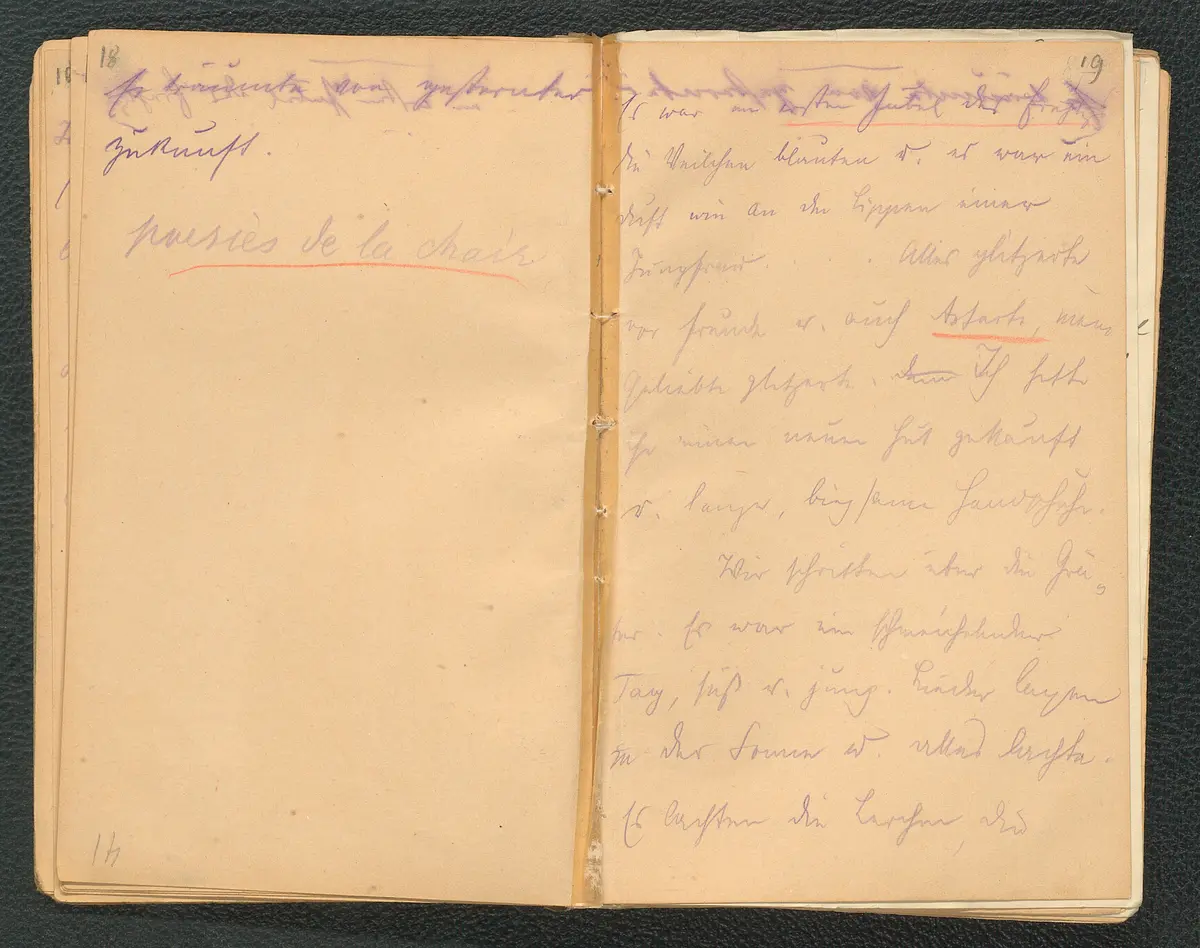 18
Er träumte von gesternter
Zukunft.
poesies de la chair
14
19
Es war im ersten Jubel des Frühl.
die Veilchen blauten u. es war ein
Duft wie an den Lippen einer
Jungfrau . . . . Alles glitzerte
vor Freude u. auch Astarte, meine
Geliebte glitzerte. denn Ich hatte
ihr einen neuen Hut gekauft
u. lange, biegsame Handschuhe.
Wir schritten über die Grä-
ber. Es war ein schmeichelnder
Tag, süß u. jung. Lieder lagen
in der Sonne u. alles lachte.
Es lachten die Lerchen, die